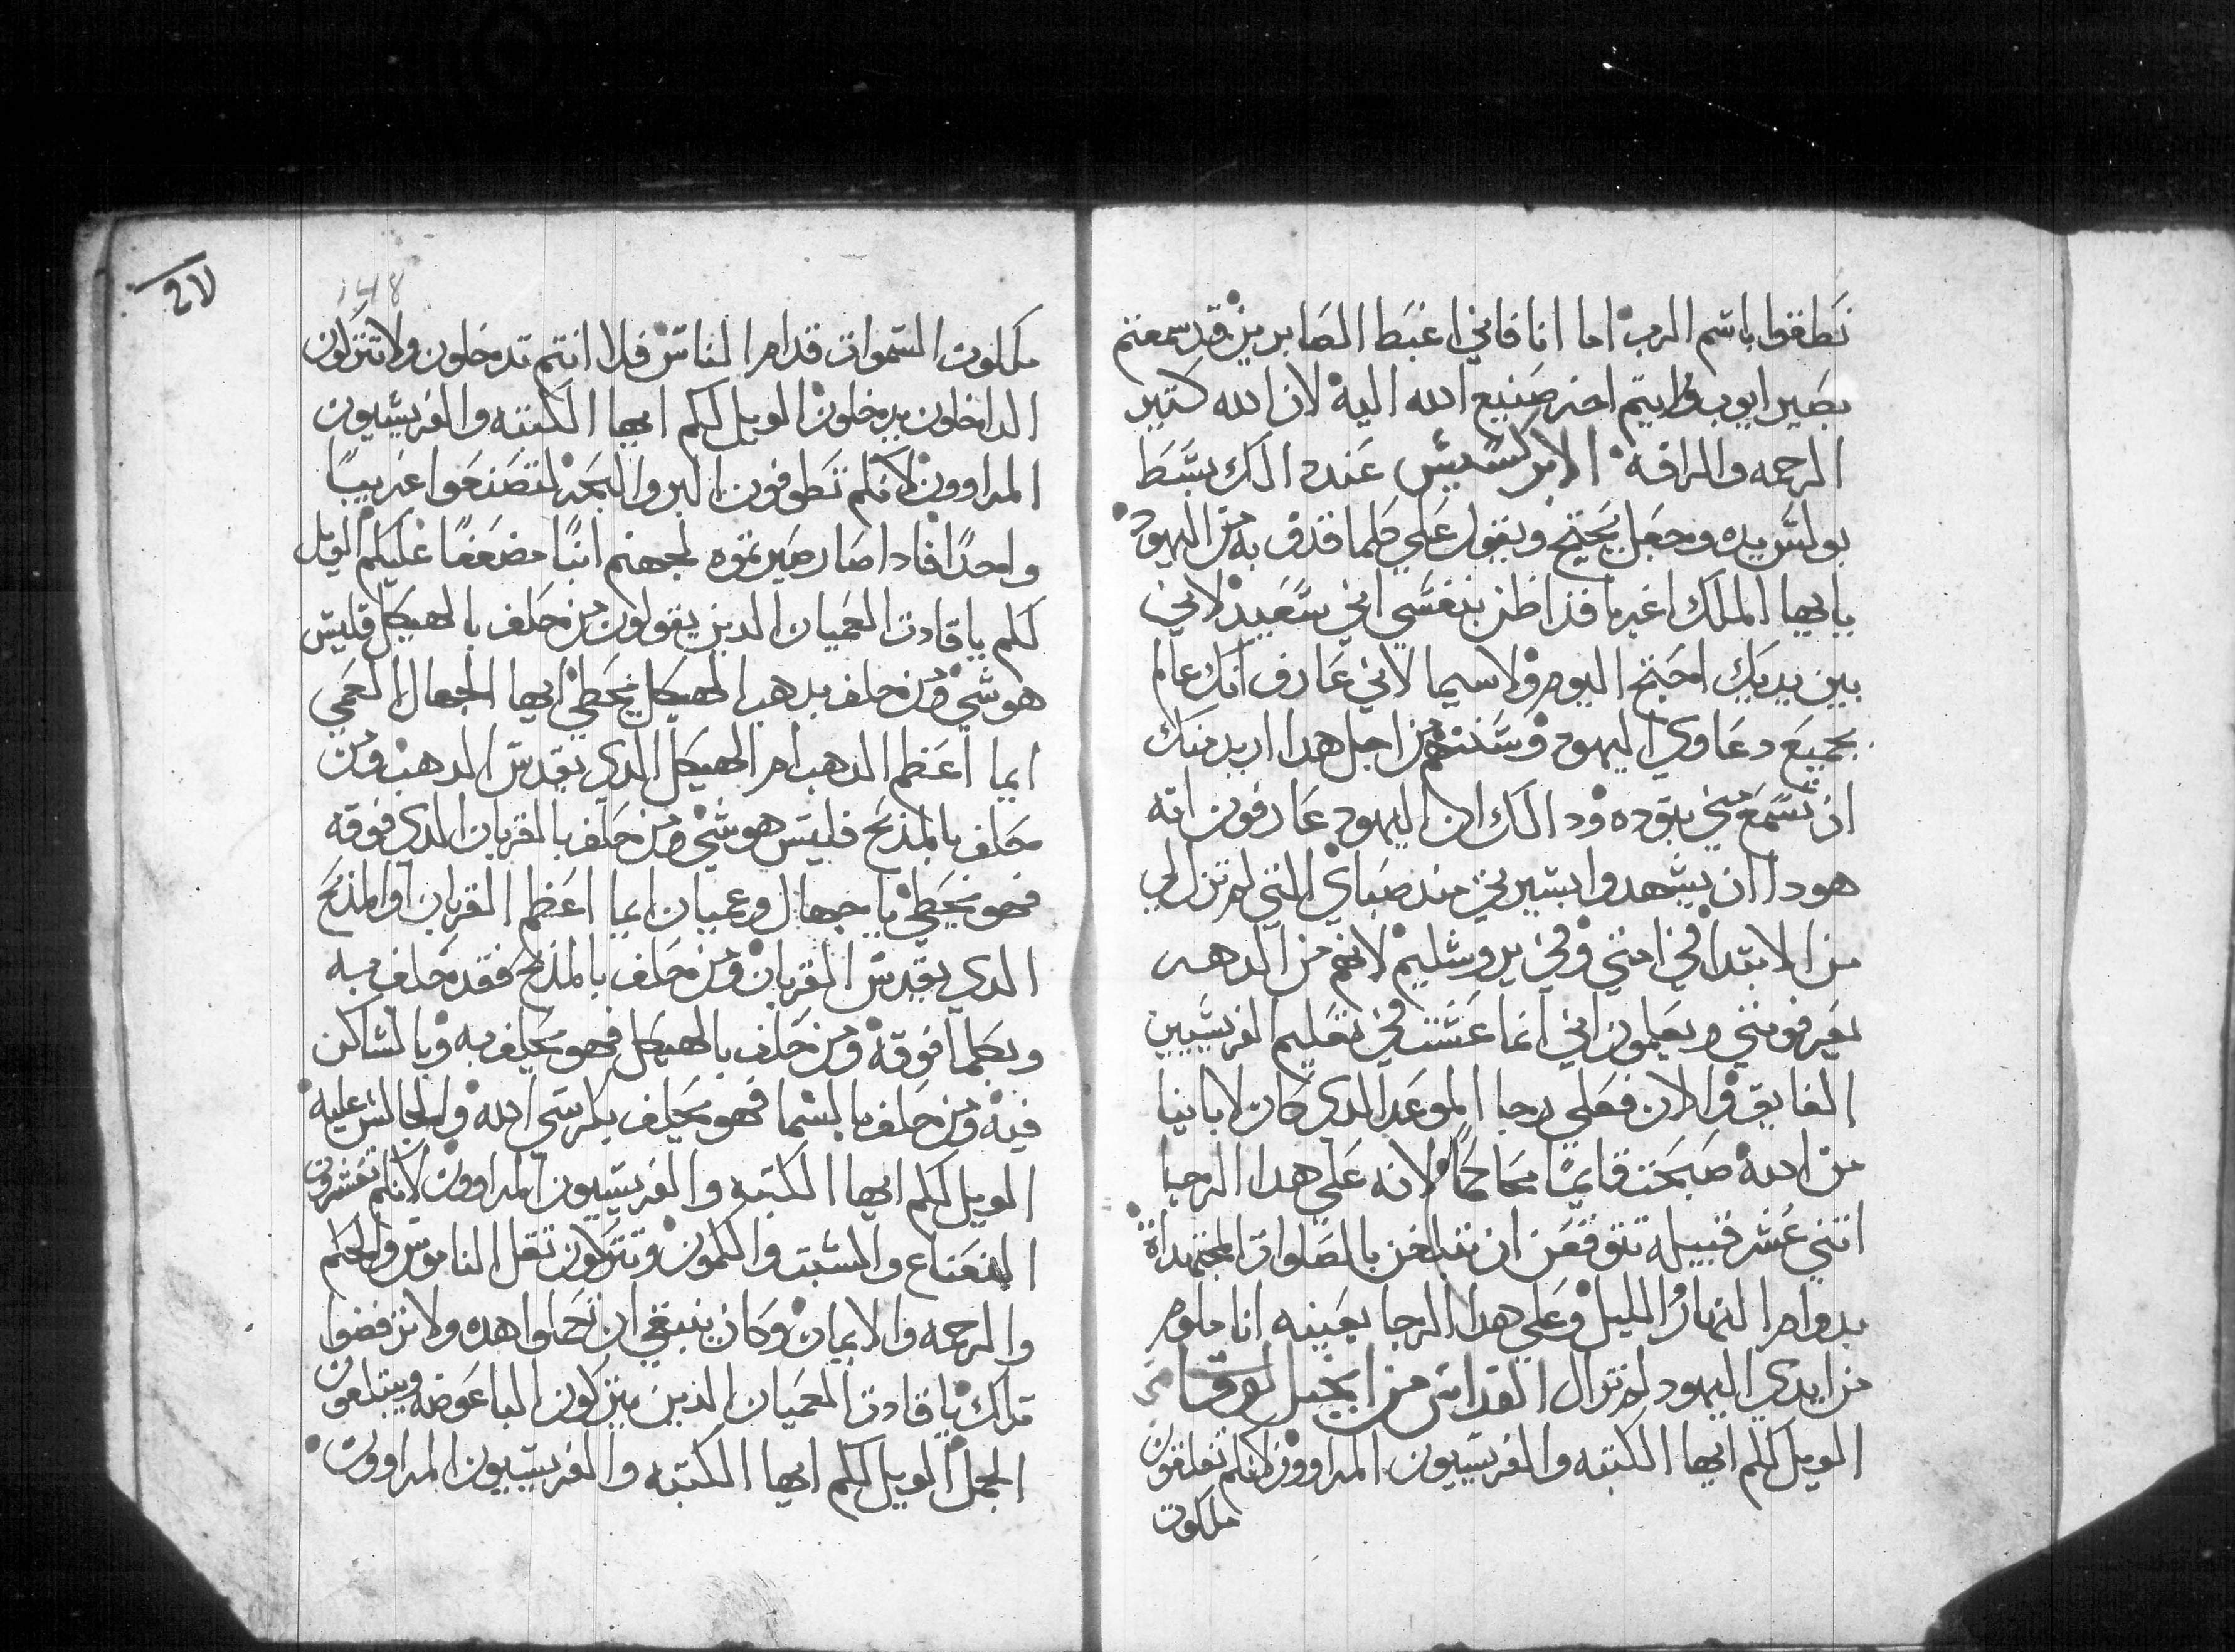 نطقوا باسم الرب اما انا فاني اغبط الصابرين قد سمعتم
بصبر ايوب ورايتم اخر صنيع الله اليه لان الله كتير
الرحمه والرافه الابركسيس عند دالك بسط
بولس يده وجعل يحتج ويقول علي كلما قدف به من اليهود
يا ايها الملك اغربا قد اظن بنفسي اني سعيد لاني
بين يديك احتج اليوم ولاسيما لاني عارف انك عالم
بجميع دعاوي اليهود وسننهم من اجل هدا اريد منك
ان تسمع مني بتوده ودالك ان اليهود عارفون انه
هودا ان يشهدوا بسيرتي مند صباي التي لم تزل لي
من الابتدا في امتي وفي يروشليم لانهم من الدهر
يعرفونني ويعلمون اني انما عشت في تعليم الفريسيين
الفايق والان فعلي رجا الموعد الدي كان لابانيا
من الله صبحت قايما محاكما لانه علي هدا الرجا
اتني عشر قبيله تتوقعن ان تبلغن بالصلوات المجتهداة
بدوام النهار والليل وعلي هدا الرجا بعينه انا ملوم
من ايدي اليهود لم تزال القداس من انجيل لوقا
الويل لكم ايها الكتبه والفريسيون المراوون لانكم تغلقون
ملكوت
27
148
ملكوت السموات قدام الناس فلا انتم تدخلون ولا تتركون
الداخلون يدخلون الويل لكم ايها الكتبه والفريسيون
المراوون لانكم تطوفون البر والبحر لتصنعوا غريبا
واحدا فادا صار صيرتموه لجهنم ابنا مضعفا عليكم الويل
لكم يا قادت العميان الدين يقولون من حلف بالهيكل فليس
هو شي ومن حلف بدهب الهيكل يخطي ايها الجهال العمي
ايما اعظم الدهب ام الهيكل الدي يقدس الدهب ومن
حلف بالمذبح فليس هو شي ومن حلف بالقربان الدي فوقه
فهو يخطي يا جهال وعميان ايما اعظم القربان او المذبح
الدي يقدس القربان ومن حلف بالمذبح فقد حلف به
وبكلما فوقه ومن حلف بالهيكل فهو يحلف به وبالساكن
فيه ومن حلف بالسما فهو يحلف بكرسي الله والجالس عليه
الويل لكم ايها الكتبه والفريسيون المراوون لانكم تعشرون
النعناع والشبت والكمون وتتركون تقل الناموس والحكم
والرحمه والايمان وكان ينبغي ان تعملوا هده ولا ترفضوا
تلك يا قادت العميان الذين يتركون الباعوضه ويبتلعون
الجمل الويل لكم ايها الكتبه والفريسيون المراوون